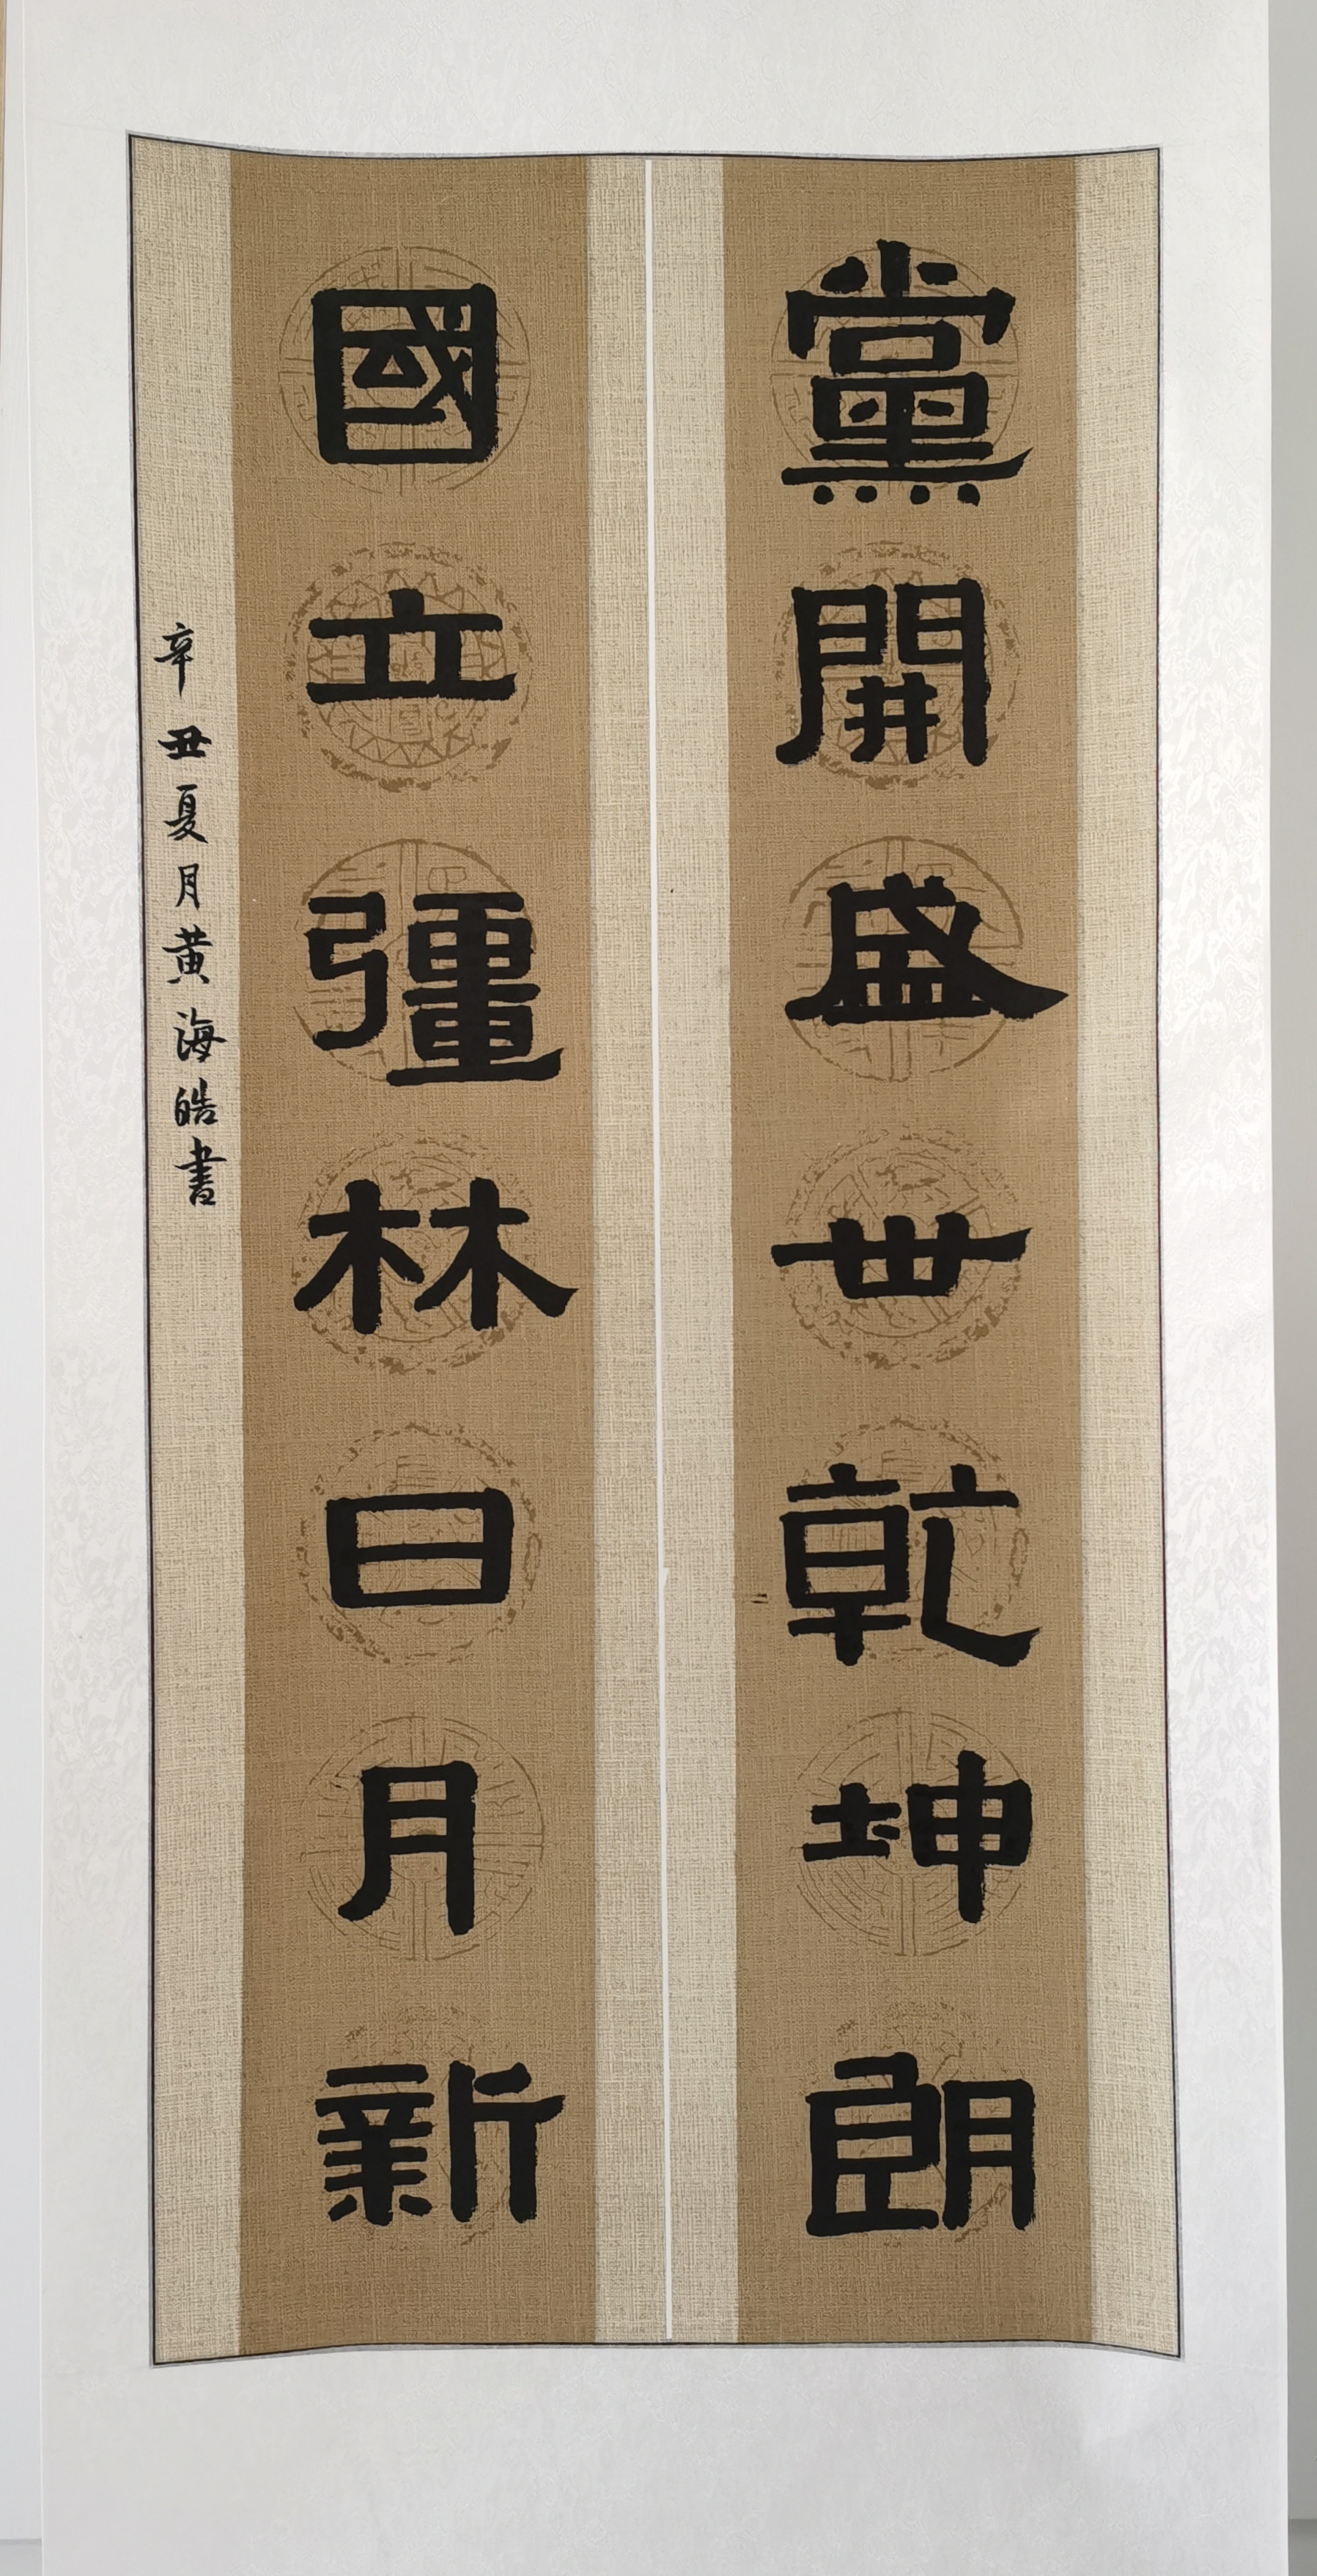 黨開盛世乾坤朗
國立彊林日月新
辛丑夏月黄海皓書